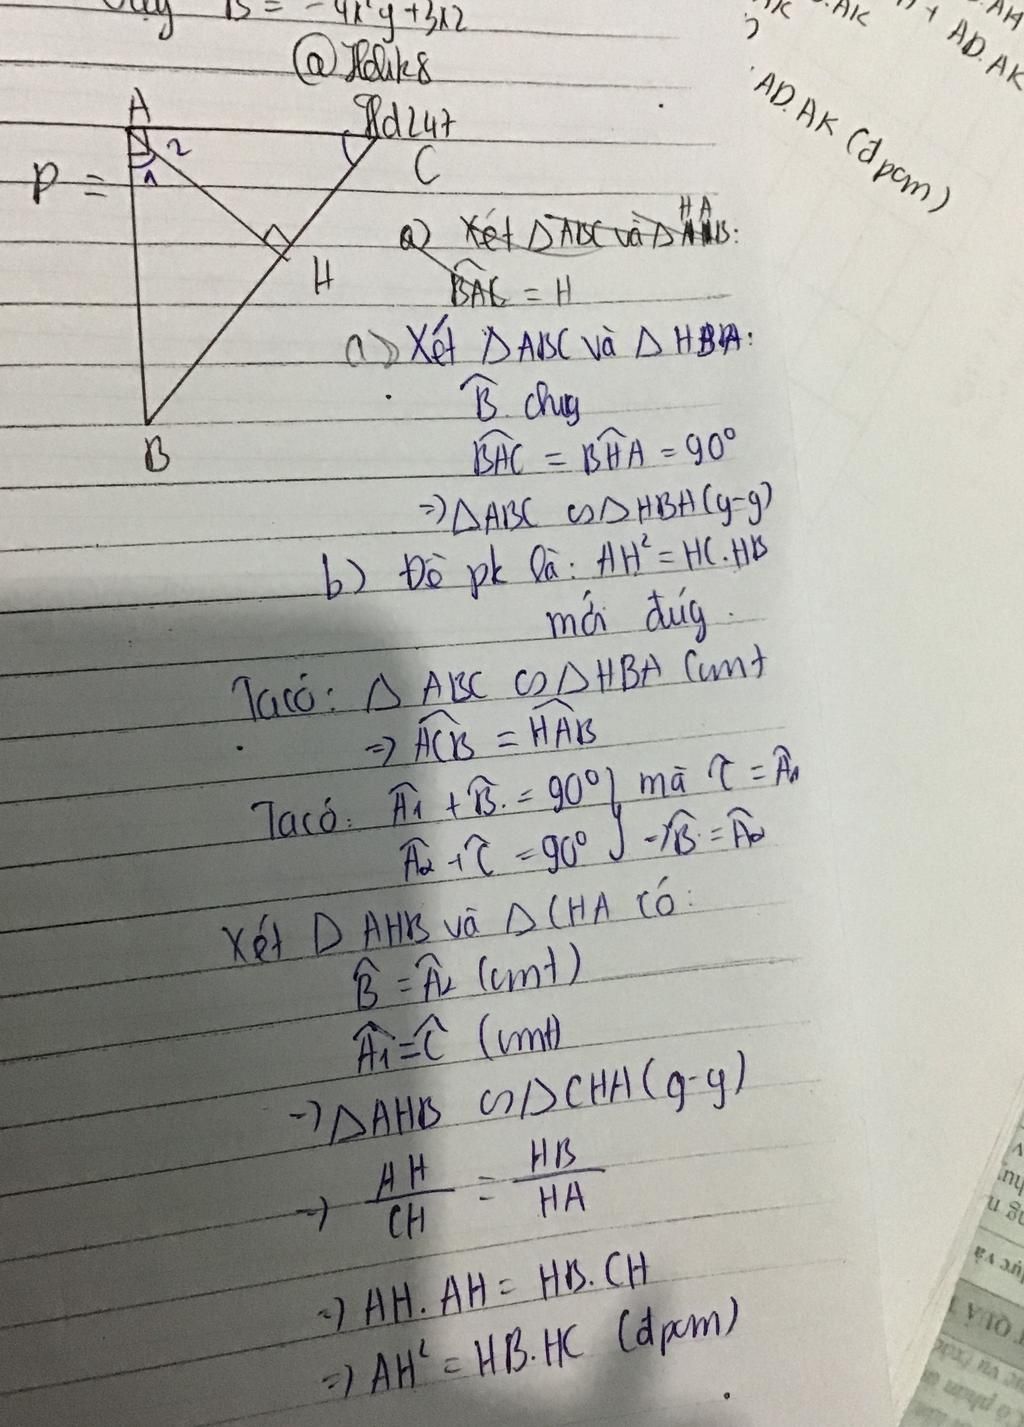 B = -4x²y + 3x2
@Hdlk8
Hd247
A
1
2
C
H
B
a) Xét △ABC và △HAB:
BAC = H
a) Xét △ABC và △HBA:
B̂ chug
BAC = BHA = 90°
=> △ABC ∽ △HBA (g-g)
b) Đề pk là: AH² = HC.HB
mới đúg.
Ta có: △ABC ∽ △HBA (cmt
=> ACB = HAB
Ta có: Â1 + B̂ = 90° } mà Ĉ = Â1
Â2 + Ĉ = 90° } => B̂ = Â2
Xét △AHB và △CHA có:
B̂ = Â2 (cmt)
Â1 = Ĉ (cmt)
=> △AHB ∽ △CHA (g-g)
=> AH/CH = HB/HA
=> AH.AH = HB.CH
=> AH² = HB.HC (đpcm)
.AK
+ AD.AK
AD.AK (đpcm)